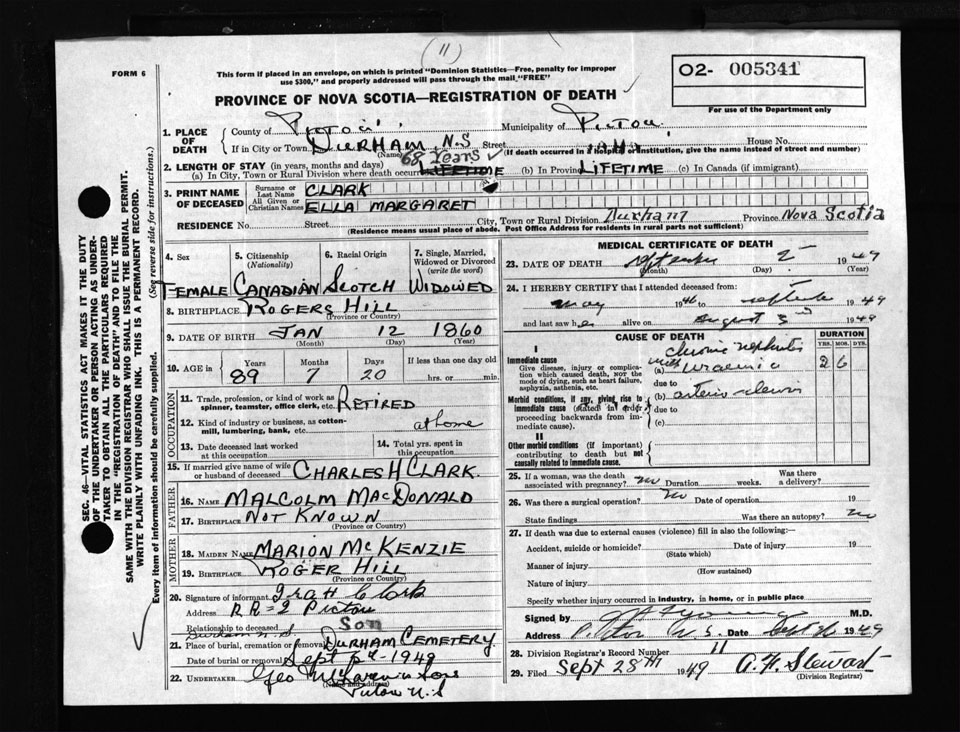 (11)
FORM 6
This form if placed in an envelope, on which is printed "Dominion Statistics—Free, penalty for improper
use $300," and properly addressed will pass through the mail "FREE"
O2- 005341
For use of the Department only
PROVINCE OF NOVA SCOTIA—REGISTRATION OF DEATH
1. PLACE OF DEATH
County of Pictou Municipality of Pictou
If in City or Town DURHAM, N.S Street House No.
(Name) (If death occurred in a hospital or institution, give the name instead of street and number)
68 Years
2. LENGTH OF STAY (in years, months and days)
(a) In City, Town or Rural Division where death occurred LIFETIME (b) In Province LIFETIME (c) In Canada (if immigrant)
3. PRINT NAME OF DECEASED
Surname or Last Name CLARK
All Given or Christian Names ELLA MARGARET
RESIDENCE No. Street City, Town or Rural Division Durham Province Nova Scotia
(Residence means usual place of abode. Post Office Address for residents in rural parts not sufficient)
SEC. 46—VITAL STATISTICS ACT MAKES IT THE DUTY
OF THE UNDERTAKER OR PERSON ACTING AS UNDER-
TAKER TO OBTAIN ALL THE PARTICULARS REQUIRED
IN THE "REGISTRATION OF DEATH" AND TO FILE THE
SAME WITH THE DIVISION REGISTRAR WHO SHALL ISSUE THE BURIAL PERMIT.
WRITE PLAINLY WITH UNFADING INK. THIS IS A PERMANENT RECORD.
Every item of information should be carefully supplied. (See reverse side for instructions.)
4. Sex 5. Citizenship (Nationality) 6. Racial Origin 7. Single, Married, Widowed or Divorced (write the word)
FEMALE CANADIAN SCOTCH WIDOWED
8. BIRTHPLACE ROGERS HILL
(Province or Country)
9. DATE OF BIRTH JAN 12 1860
(Month) (Day) (Year)
10. AGE in Years Months Days If less than one day old
89 7 20 hrs. or min.
OCCUPATION
11. Trade, profession, or kind of work as spinner, teamster, office clerk, etc. RETIRED
12. Kind of industry or business, as cotton-mill, lumbering, bank, etc. at home
13. Date deceased last worked at this occupation
14. Total yrs. spent in this occupation
15. If married give name of wife or husband of deceased CHARLES H CLARK.
FATHER
16. NAME MALCOLM MACDONALD
17. BIRTHPLACE NOT KNOWN
(Province or Country)
MOTHER
18. MAIDEN NAME MARION McKENZIE
19. BIRTHPLACE ROGER HILL
(Province or Country)
20. Signature of informant Ira H Clark
Address RR=2 Pictou
Relationship to deceased Son
Durham N.S
21. Place of burial, cremation or removal DURHAM CEMETERY
Date of burial or removal Sept 1949
22. UNDERTAKER Geo Sons
(Name and address)
Pictou N.S
MEDICAL CERTIFICATE OF DEATH
23. DATE OF DEATH September 2 1949
(Month) (Day) (Year)
24. I HEREBY CERTIFY that I attended deceased from:
May 1946 to September 1949
and last saw her alive on August 3rd 1949
CAUSE OF DEATH DURATION
YRS. MOS. DYS.
I
Immediate cause
Give disease, injury or complication which caused death, not the mode of dying, such as heart failure, asphyxia, asthenia, etc.
chronic nephritis
with
(a) uraemia 2 6
due to
Morbid conditions, if any, giving rise to immediate cause (stated in order proceeding backwards from immediate cause).
(b)
due to
(c)
II
Other morbid conditions (if important) contributing to death but not causally related to immediate cause.
25. If a woman, was the death associated with pregnancy? no Duration weeks. Was there a delivery?
26. Was there a surgical operation? no Date of operation 19
State findings Was there an autopsy? no
27. If death was due to external causes (violence) fill in also the following:—
Accident, suicide or homicide? Date of injury 19
(State which)
Manner of injury
(How sustained)
Nature of injury
Specify whether injury occurred in industry, in home, or in public place
Signed by M.D.
Address Pictou N.S. Date Sept 1949
28. Division Registrar's Record Number 11
29. Filed Sept 28TH 1949 A.H. Stewart
(Division Registrar)